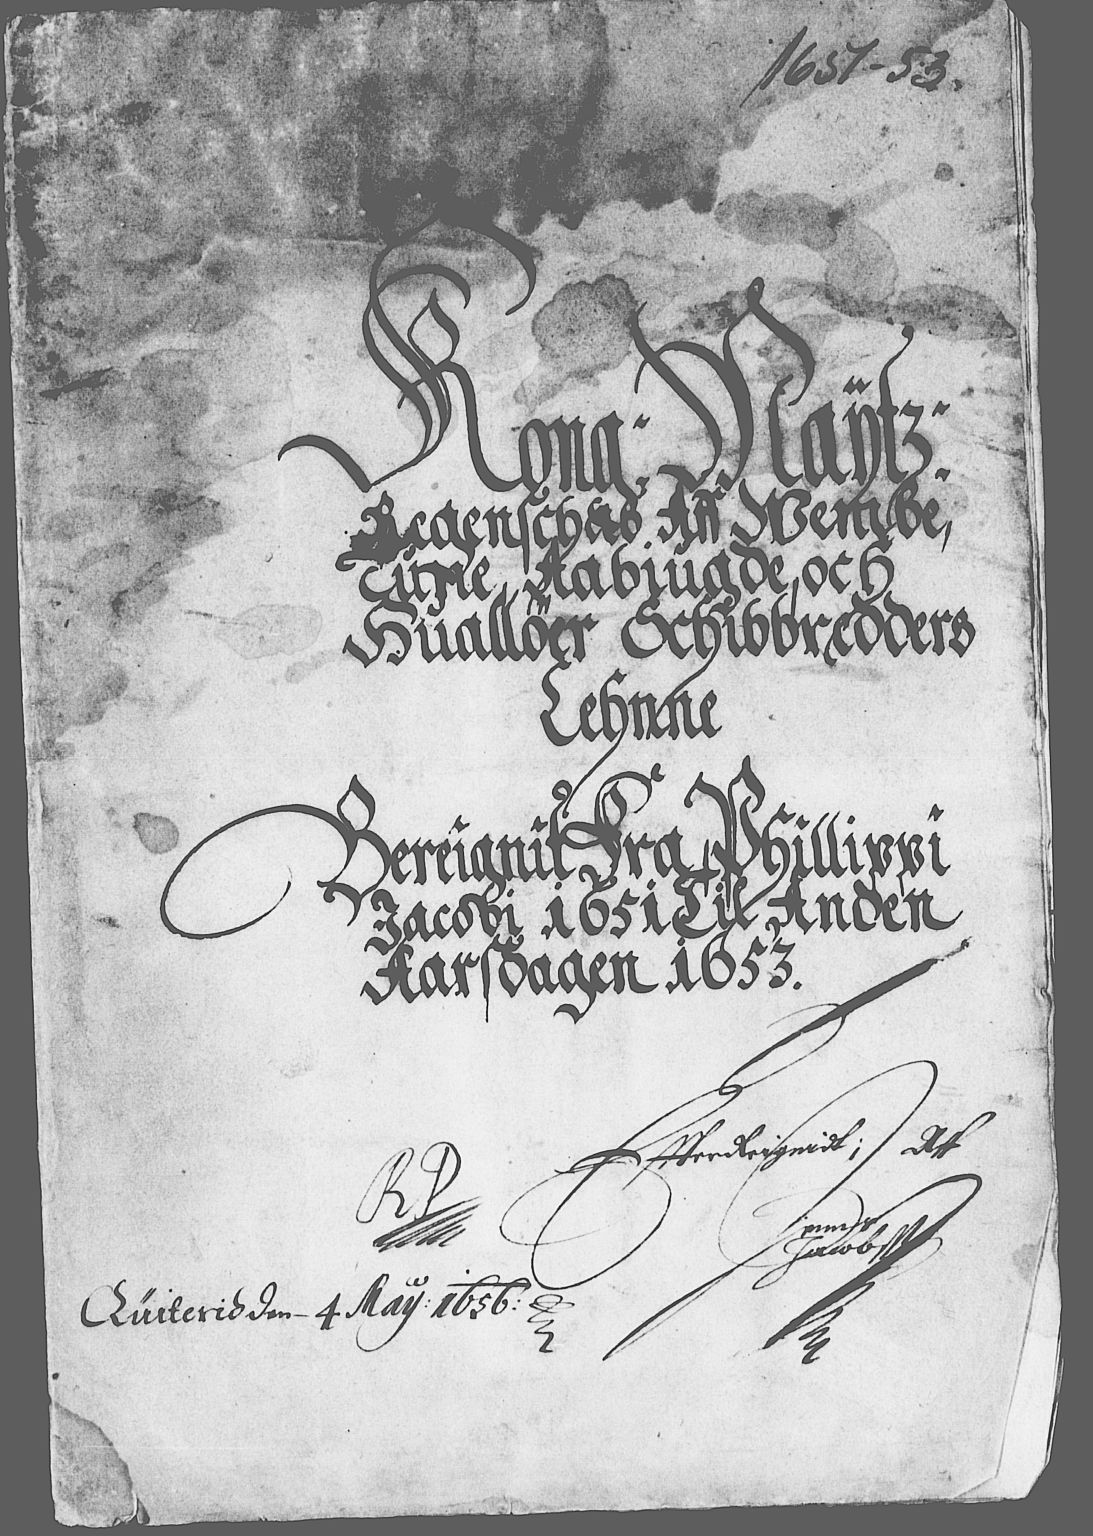 1651-53.
Kong: Maÿtz:
Regenschab Aff Wembe,
Tüsne, Aabiügde, och
Hüallöer Schibbredders
Lehnne
Bereignit Fra Phillippi
Jacobi 1651 Til Anden
Aarsdagen 1653.
Offverdreignidt; Aff
RP
Jacobß
Qüiterid den 4 Maÿ: 1656: